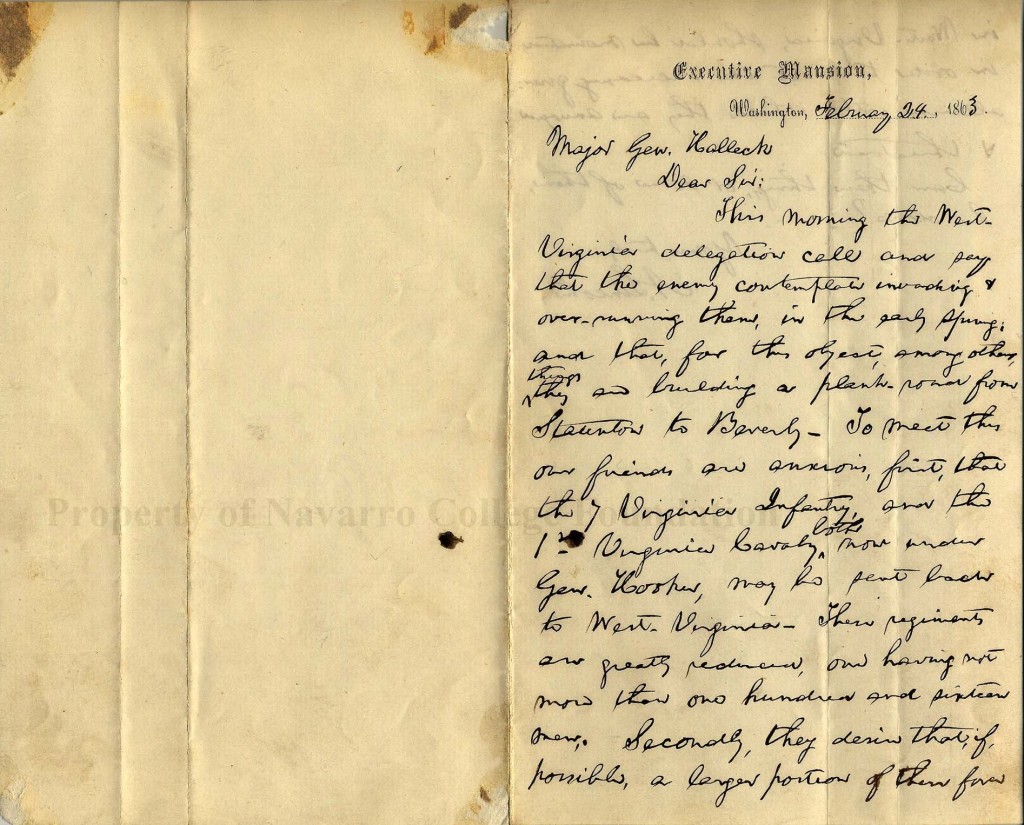 Executive Mansion,
Washington, February 24, 1863.
Major Gen. Halleck
Dear Sir:
This morning the West-
Virginia delegation call and say
that the enemy contemplate invading &
over-running them, in the early Spring;
and that, for this object, among other
things
they are building a plank-road from
Staunton to Beverly - To meet this
our friends are anxious, first, that
the 7 Virginia Infantry, and the
1st Virginia Cavalry, both now under
Gen. Hooker, may be sent back
to West-Virginia - These regiments
are greatly reduced, one having not
more than one hundred and sixteen
men. Secondly, they desire that, if,
possible, a larger portion of their force
Property of Navarro College Foundation